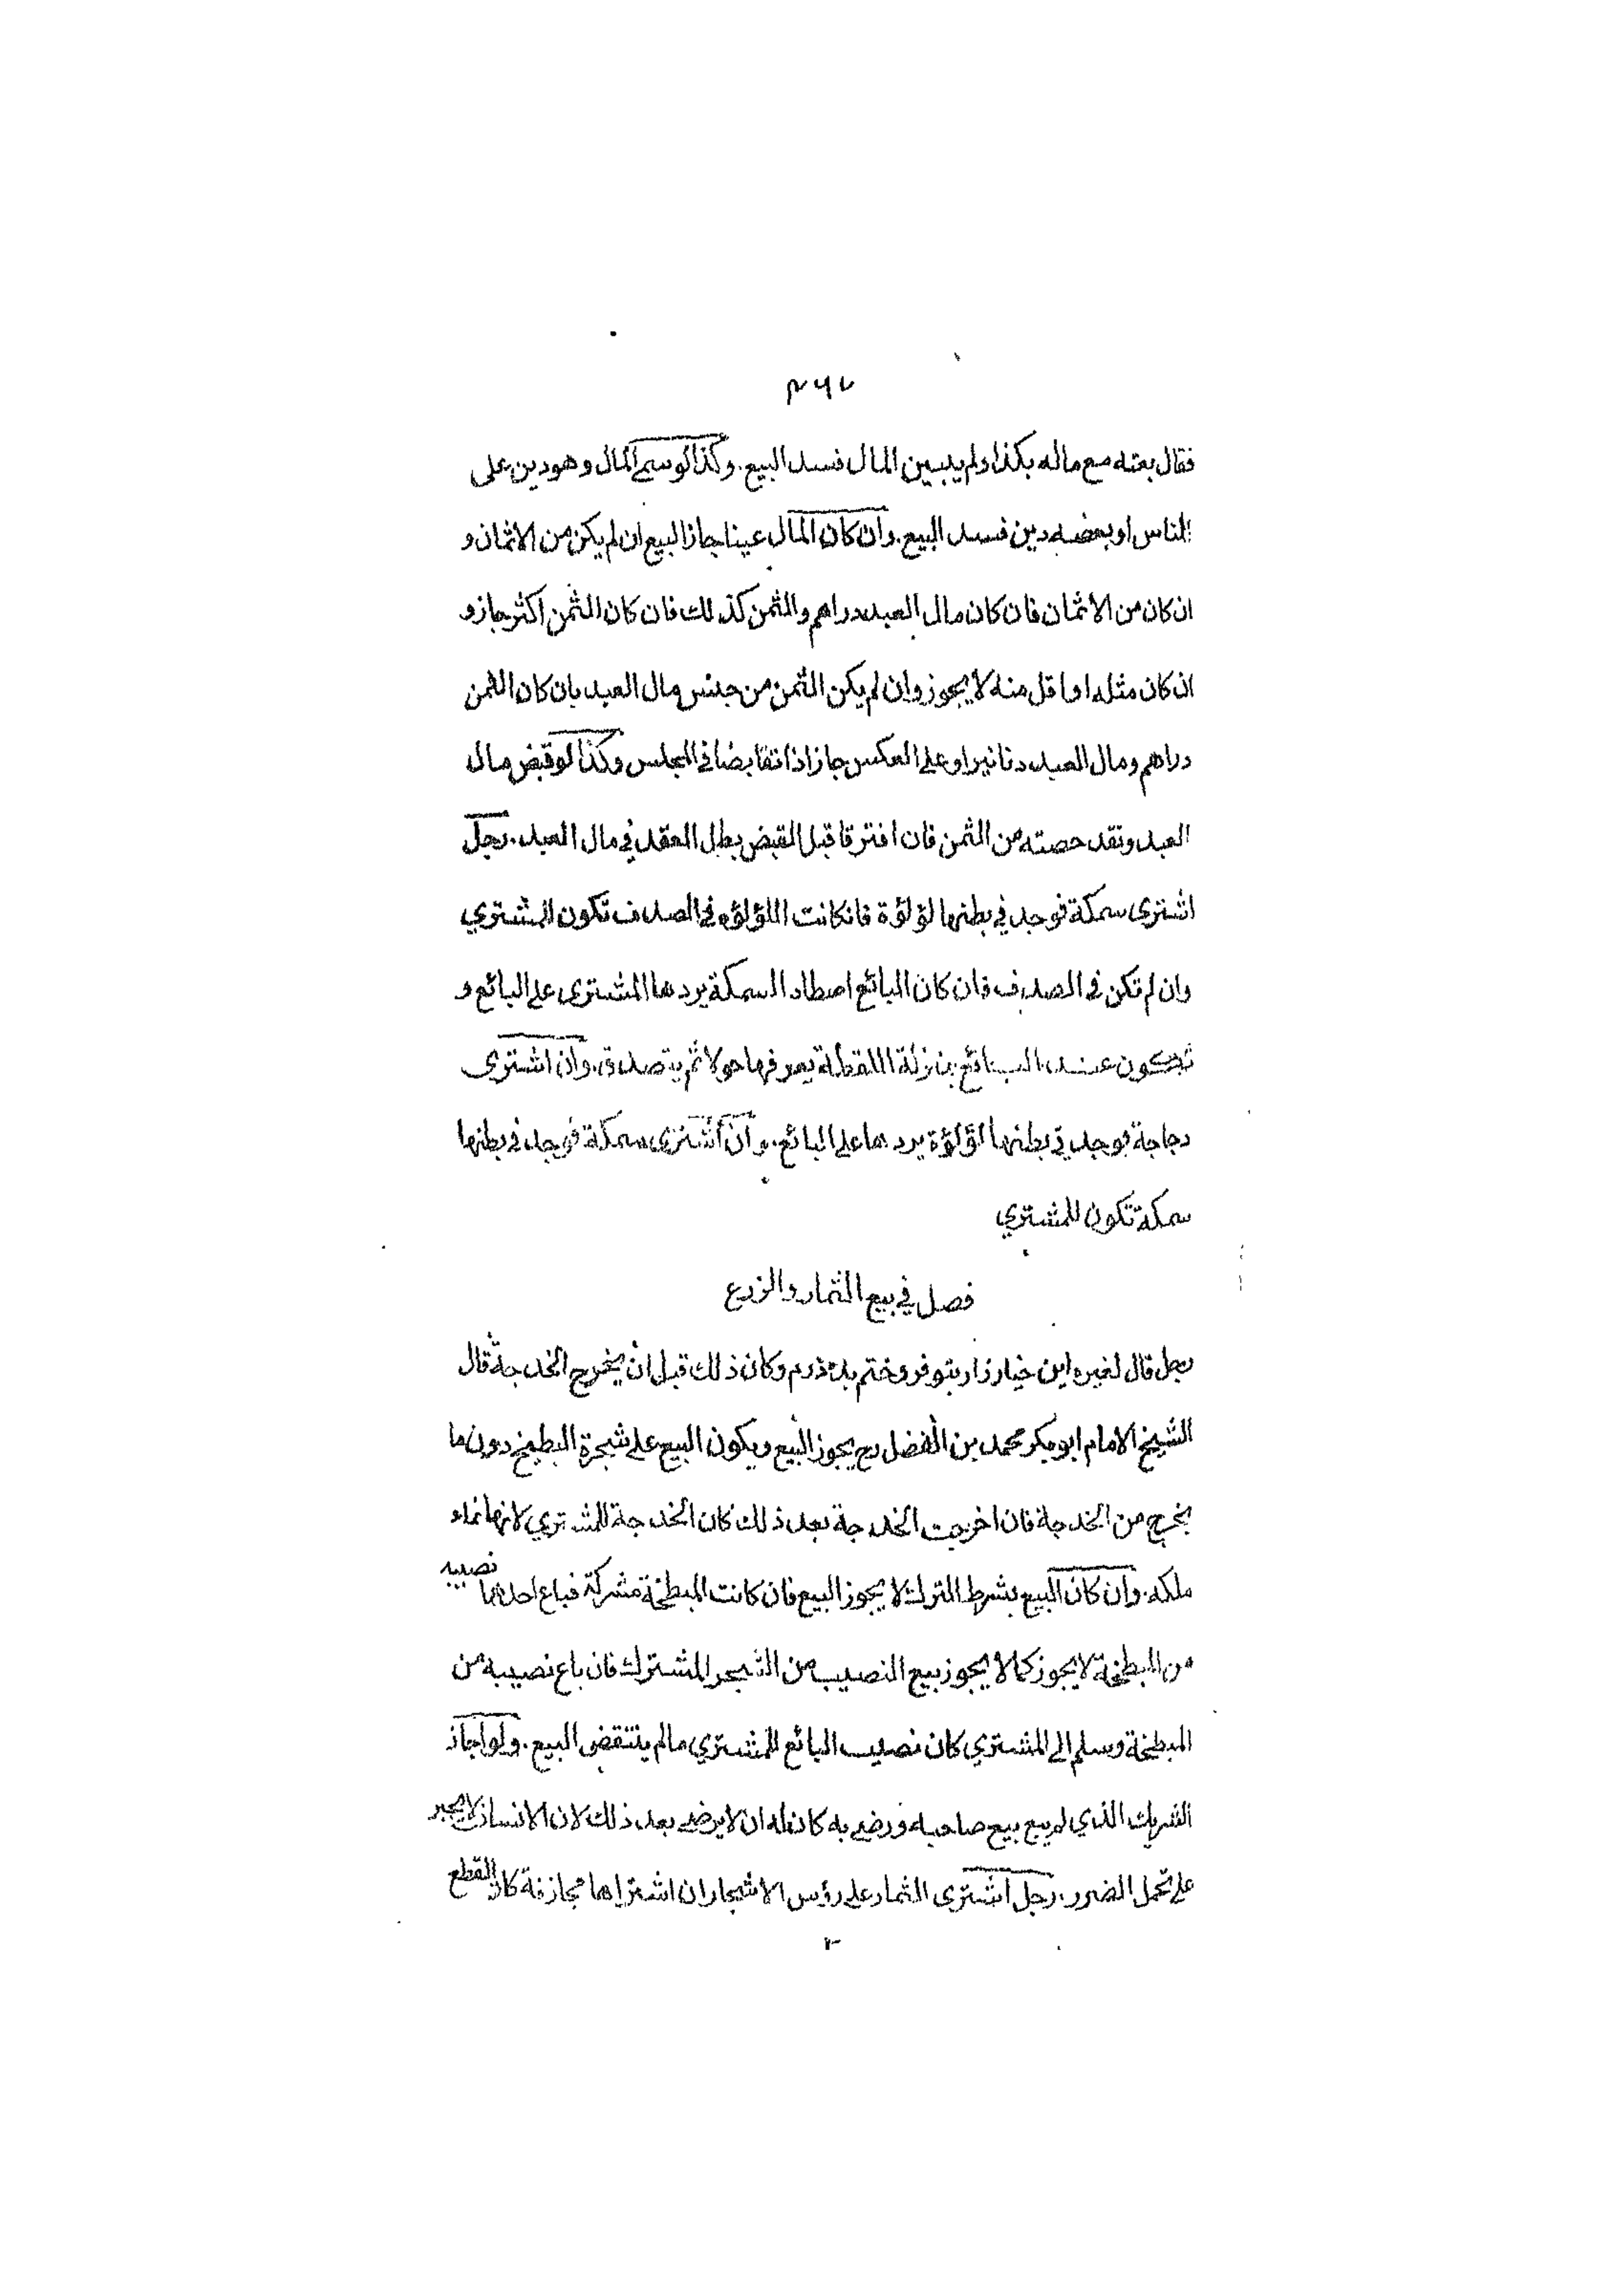 ٣٦٧
فقال بعته مع ماله بكذا ولم يبين المال فسد البيع. وكذا لو سمى المال وهو دين على
الناس او بعضه دين فسد البيع. وان كان المال عينا جاز البيع ان لم يكن من الاثمان و
ان كان من الاثمان فان كان مال العبد دراهم والثمن كذلك فان كان الثمن اكثر جاز و
ان كان مثله او اقل منه لا يجوز وان لم يكن الثمن من جنس مال العبد بان كان الثمن
دراهم ومال العبد دنانير او على العكس جاز اذا تقابضا في المجلس وكذا لو قبض مال
العبد ونقد حصته من الثمن فان افترقا قبل القبض بطل العقد في مال العبد. رجل
اشترى سمكة فوجد في بطنها لؤلؤة فان كانت اللؤلؤه في الصدف تكون للمشتري
وان لم تكن في الصدف فان كان البائع اصطاد السمكة يردها المشترى على البائع و
تكون عند البائع بمنزلة اللقطة يعرفها حولا ثم يتصدق. وان اشترى
دجاجة فوجد في بطنها لؤلؤة يردها على البائع. وان اشترى سمكة فوجد في بطنها
سمكة تكون للمشتري
فصل في بيع الثمار والزرع
رجل قال لغيره اين خيارزار بتو فروختم بده درم وكان ذلك قبل ان يخرج الخدجة قال
الشيخ الامام ابو بكر محمد بن الفضل رح يجوز البيع ويكون البيع على شجرة البطيخ دون ما
يخرج من الخدجة فان اخرجت الخدجة بعد ذلك كان الخدجة للمشتري لانها نماء
ملكه. وان كان البيع بشرط الترك لا يجوز البيع فان كانت المبطخة مشركة فباع احدهما نصيبه
من المبطخة لا يجوز كما لا يجوز بيع النصيب من الشجر المشترك فان باع نصيبه من
المبطخة وسلم الى المشتري كان نصيب البائع للمشتري مالم ينتقض البيع. ولو اجاز
الشريك الذي لم يبع بيع صاحبه ورضي به كان له ان لا يرضى بعد ذلك لان الانسان لا يجبر
على تحمل الضرر. رجل اشترى الثمار على رؤس الاشجار ان اشتراها مجازفة كان القطع